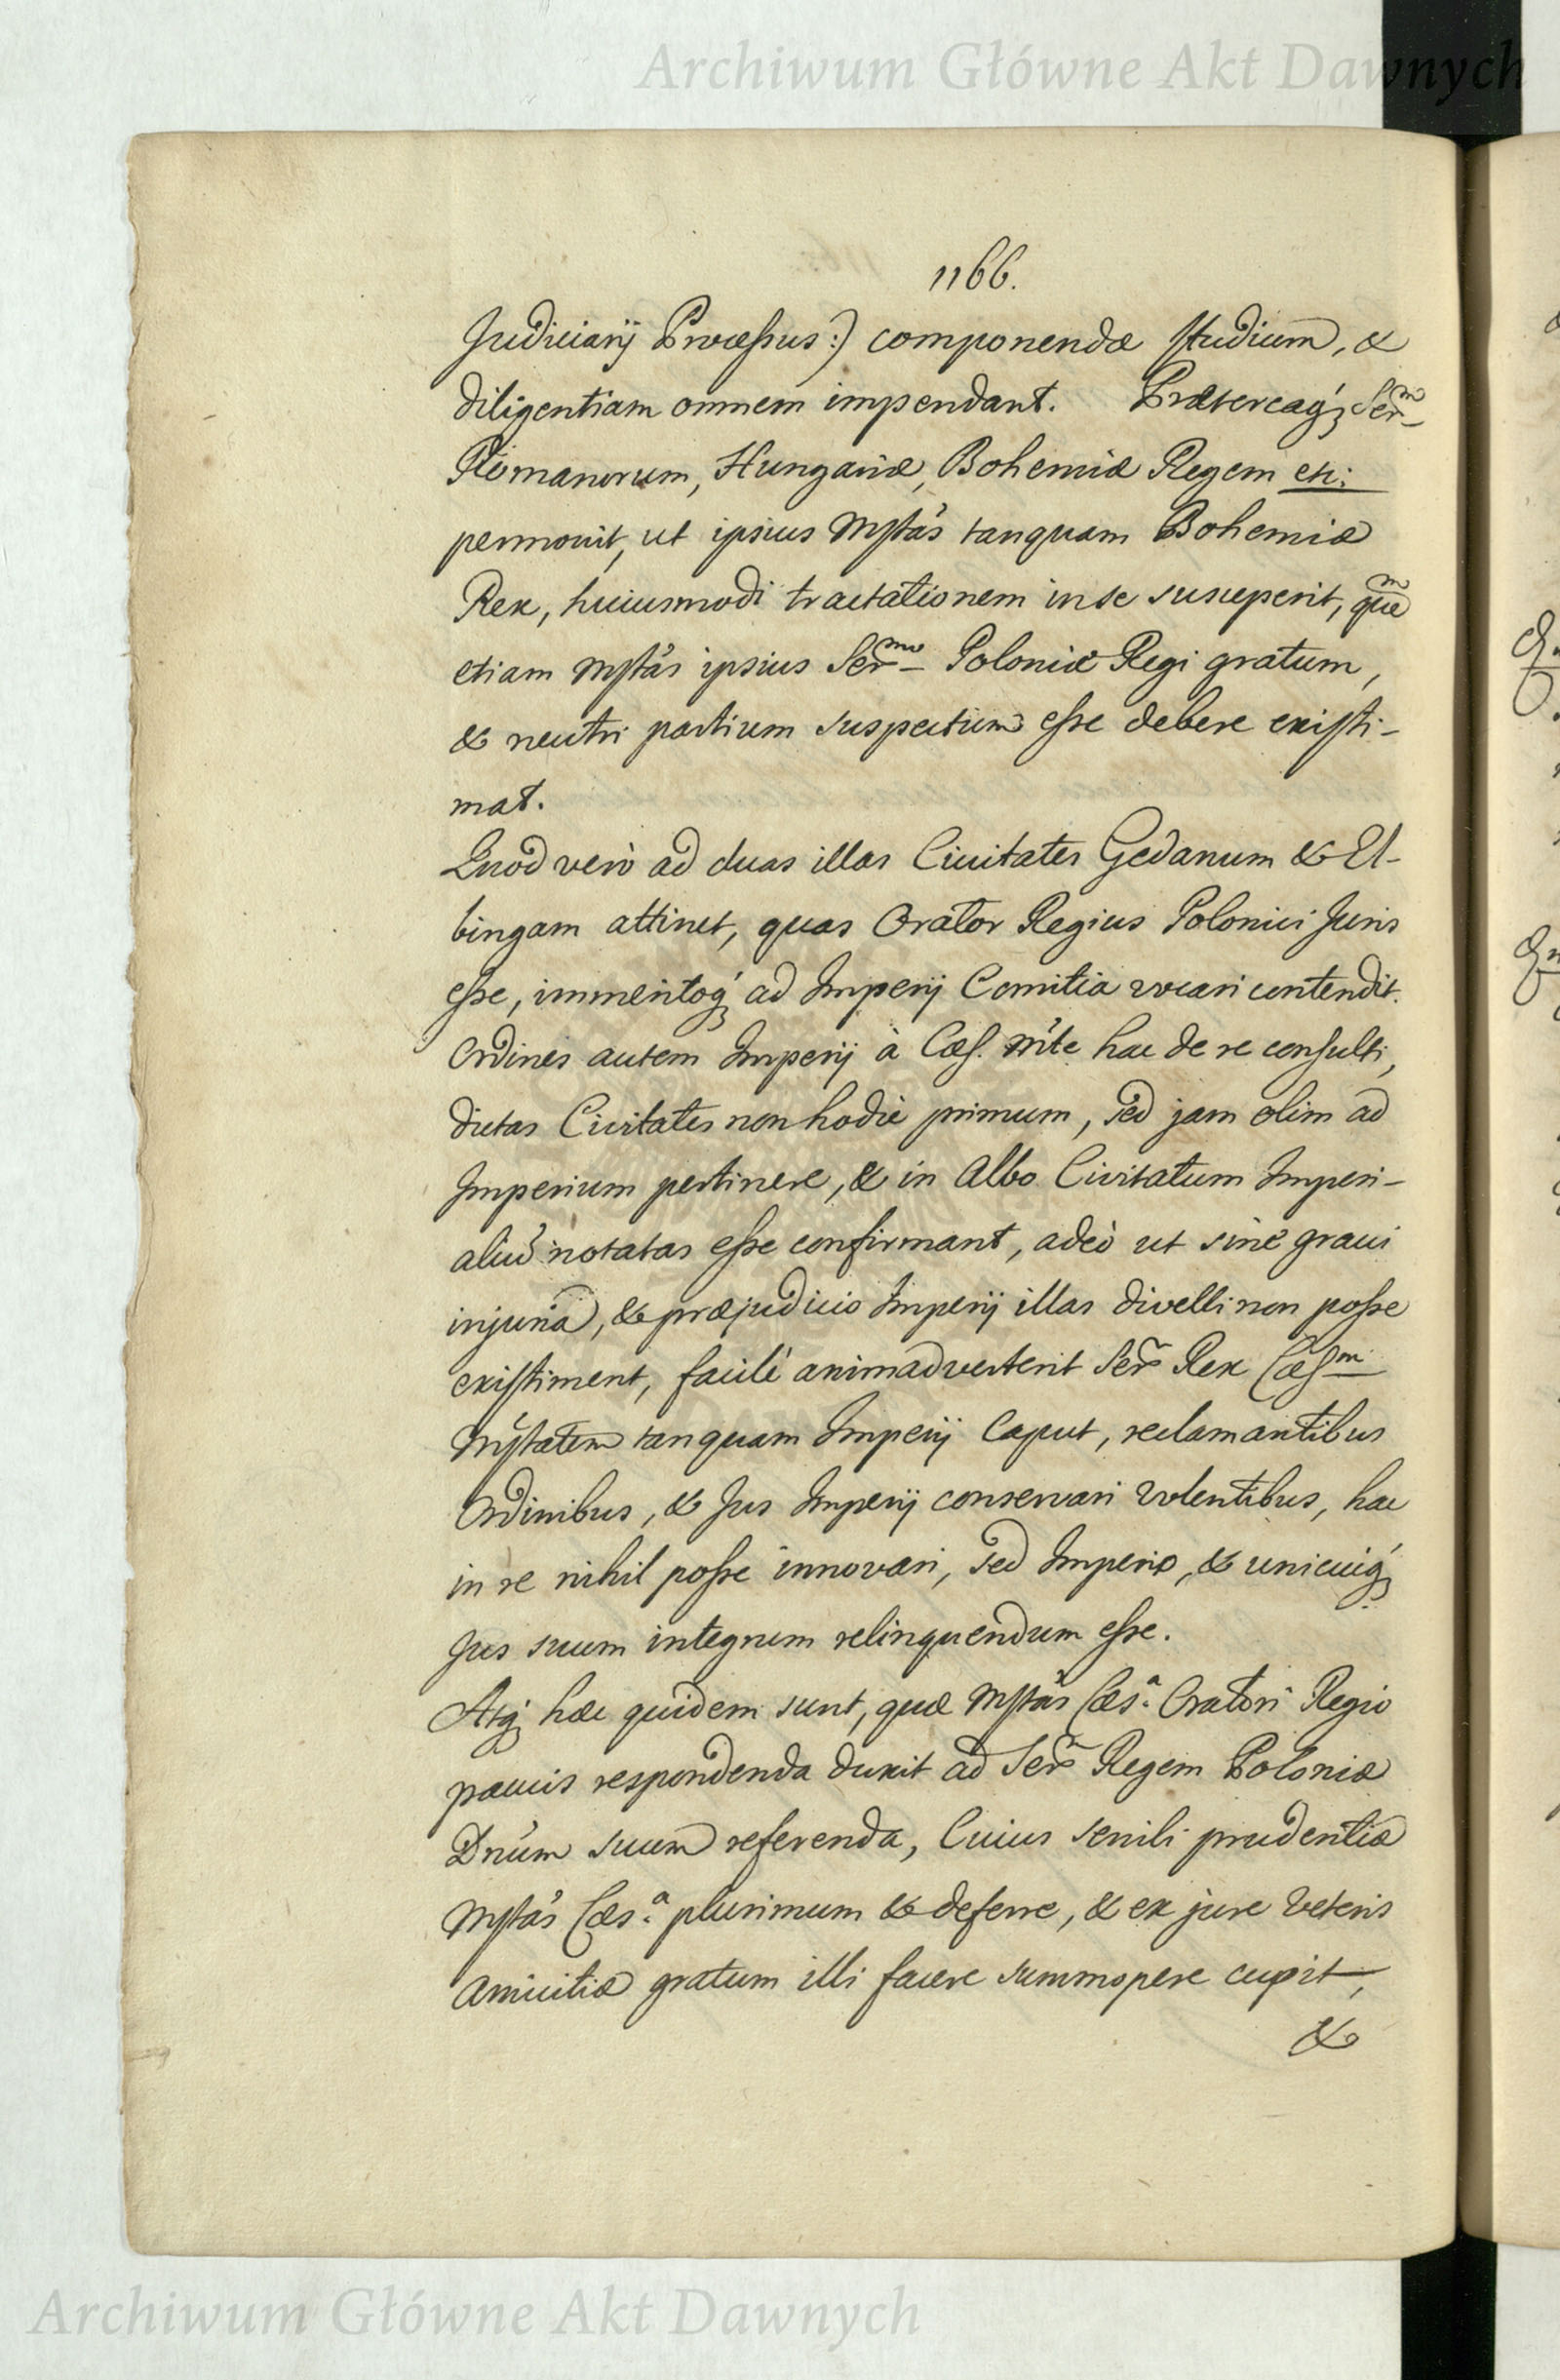 Archiwum Główne Akt Dawnych
1166.
Judiciarij Processus:) componendæ studium, &
diligentiam omnem impendant. Prætereaq́ Ser̃ᵐ
Romanorum, Hungariæ, Bohemiæ Regem etc:
permovit, ut ipsius Mstás tanquam Bohemiæ
Rex, huiusmodi tractationem in se susceperit, quẽᵐ
etiam Mstás ipsius Serᵐᵒ Poloniæ Regi gratum,
& neutri partium suspectum esse debere existi-
mat.
Quod verò ad duas illas Civitates Gedanum & El-
bingam attinet, quas Orator Regius Polonici Juris
esse, immeritoq́ ad Imperij Comitia vocari contendit.
Ordines autem Imperij à Cæs. Mĩte hac de re consulti,
dictas Civitates non hodiè primum, sed jam olim ad
Imperium pertinere, & in Albo Civitatum Imperi-
aliũ notatas esse confirmant, adeò ut sine graui
injuria, & præjudicio Imperij illas divelli non posse
existiment, facilè animadverterit Ser̃ Rex Cæsᵐ
Ms̃tatem tanquam Imperij Caput, reclamantibus
Ordinibus, & Jus Imperij conservari volentibus, hac
in re nihil posse innovari, sed Imperio, & unicuiq́
Jus suum integrum relinquendum esse.
Atq́ hæc quidem sunt, quæ Mstás Cæs.ᵃ Oratori Regio
paucis respondenda duxit ad Ser̃ Regem Poloniæ
Dnúm suum referenda, Cuius senili prudentiæ
Mstás Cæs.ᵃ plurimum & deferre, & ex jure Veteris
Amicitiæ gratum illi facere summopere cupit,
&
Archiwum Główne Akt Dawnych